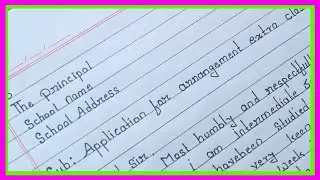 The Principal
School Name
School Address
Sub: Application for arrangement extra cla
sir, Most humbly and respectful
I am Intermediate s
havebeen studied
very keen
week